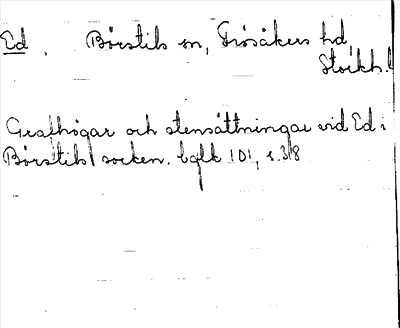 Ed. Börstils sn, Frösåkers hd,
Stockh. l
Grafhögar och stensättningar vid Ed i
Börstils socken. 101, s. 318